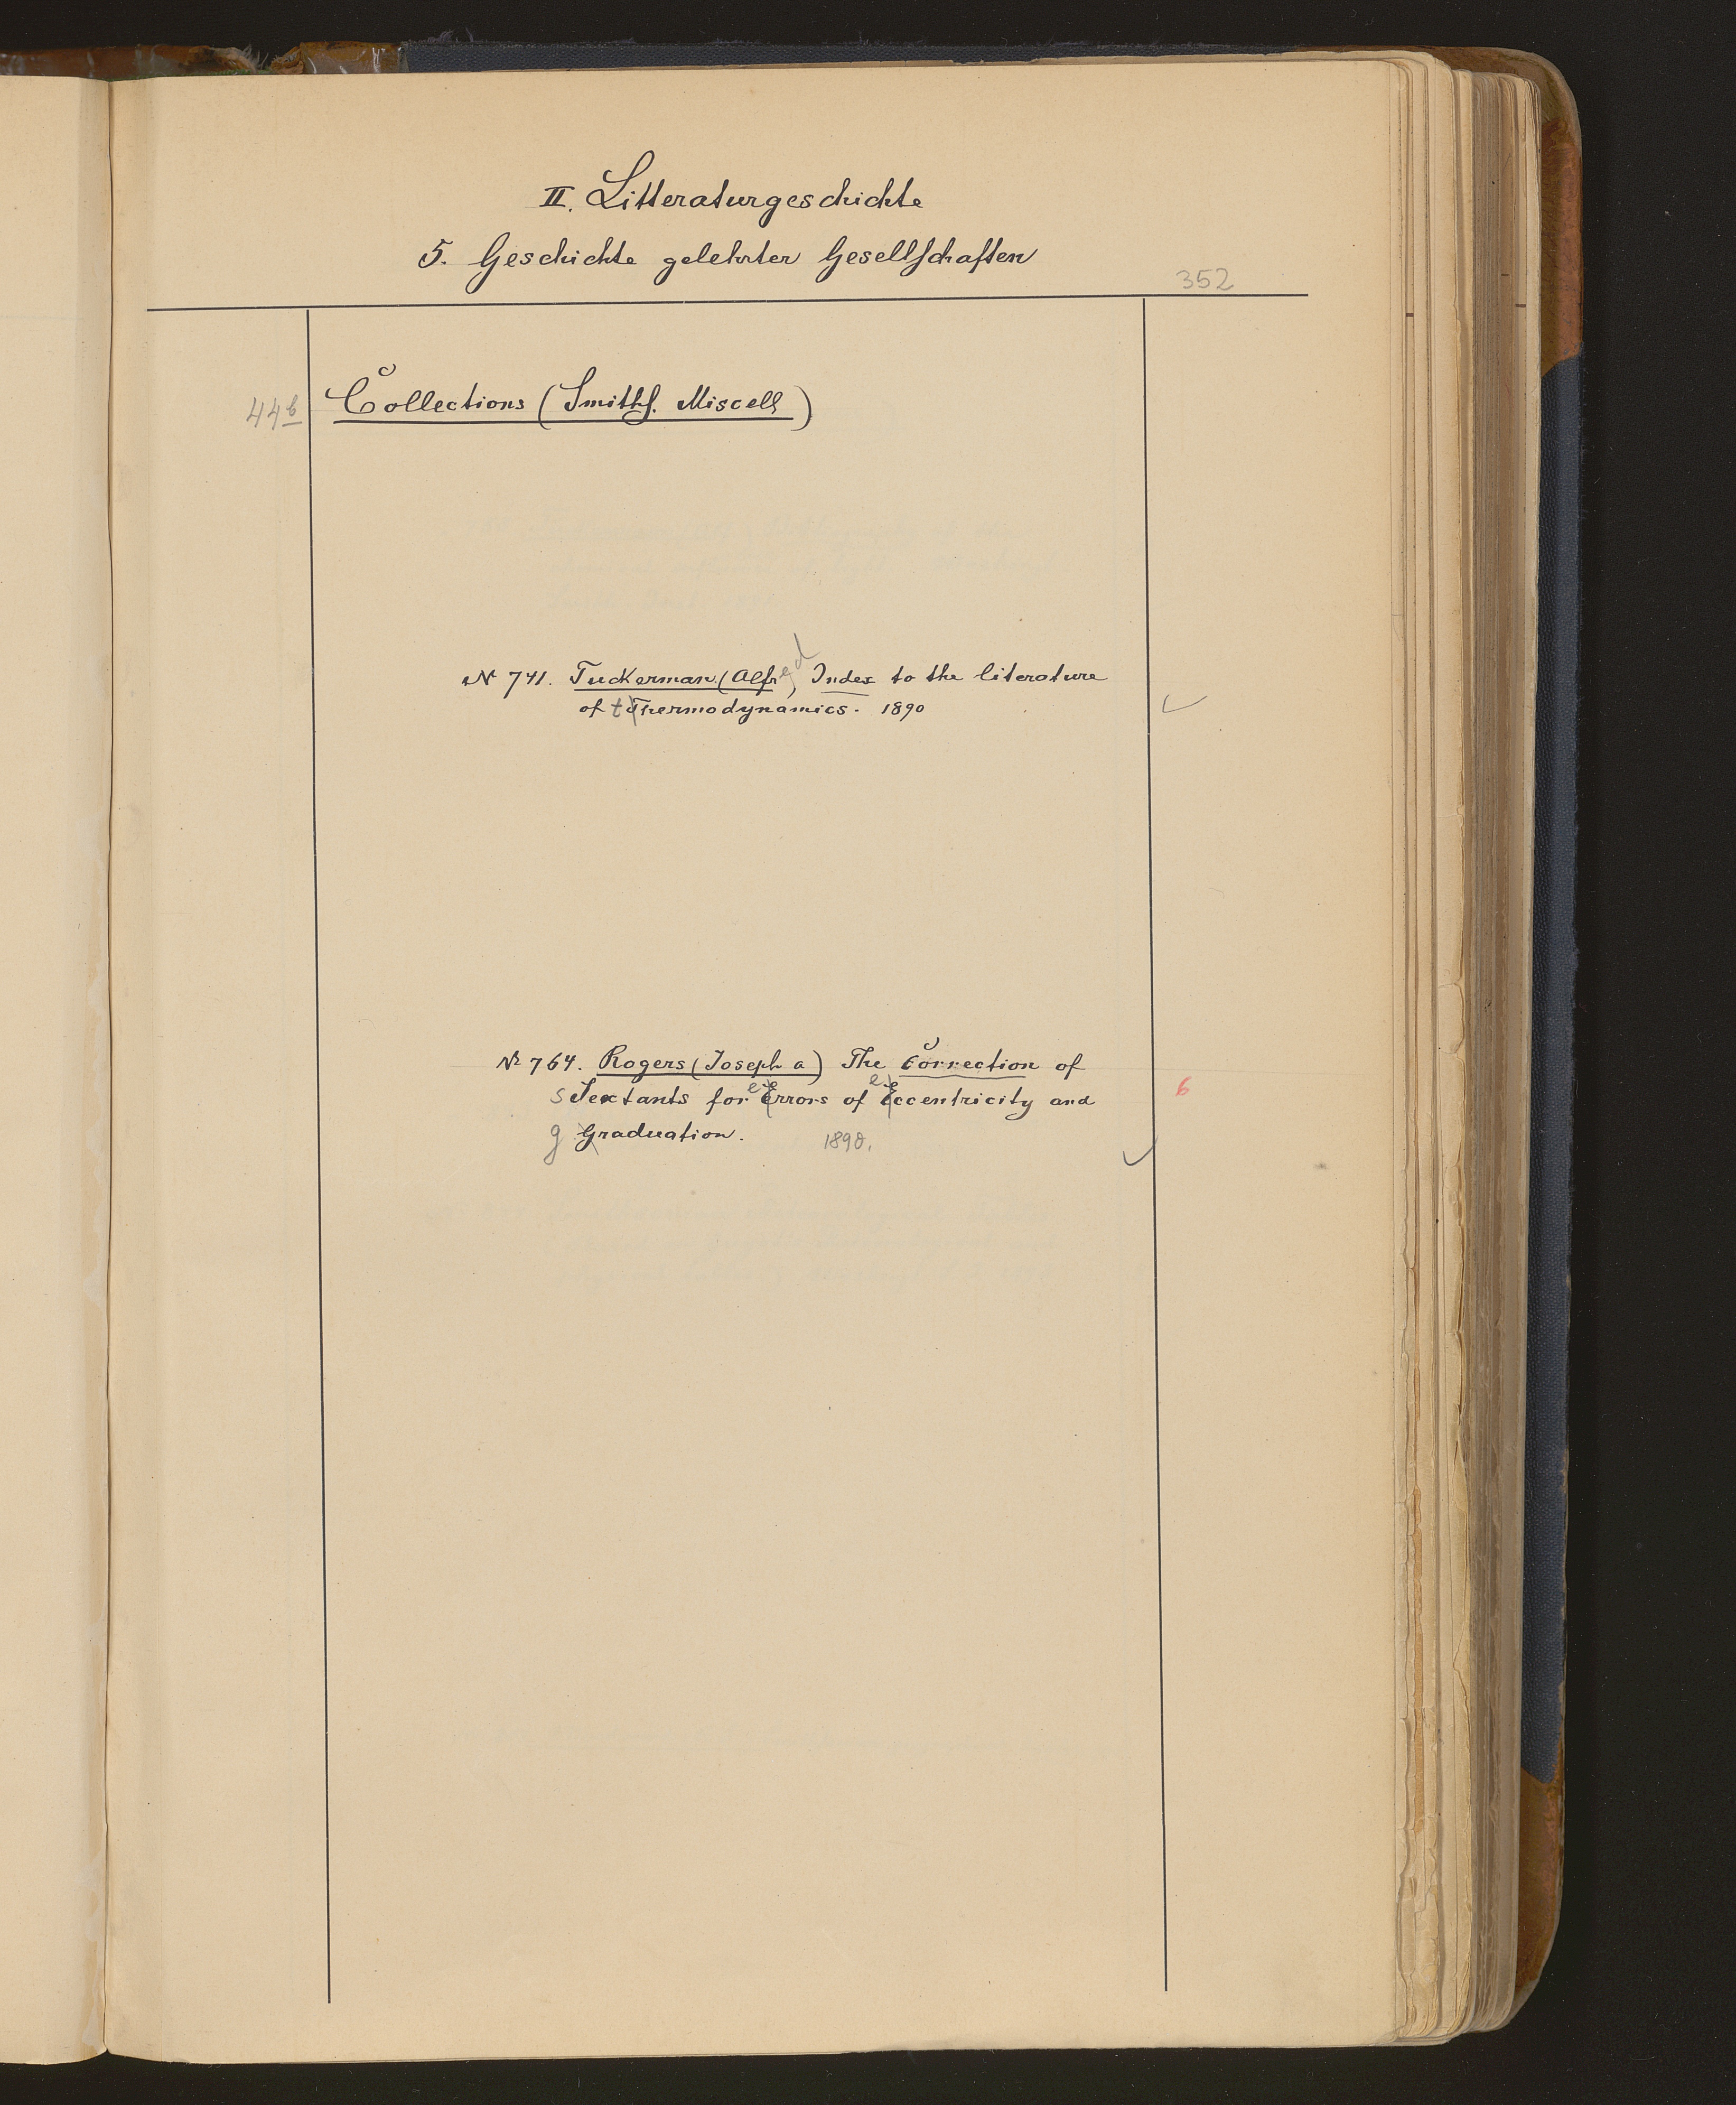 II. Litteraturgeschichte
5. Geschichte gelehrter Gesellschaften
352
44b Collections (Smiths. Miscell)
No 741. Tuckerman (Alfred) Index to the literature
of thermodynamics. 1890
No 764. Rogers (Joseph a) The Correction of
sextants for errors of eccentricity and
6
graduation. 1890.